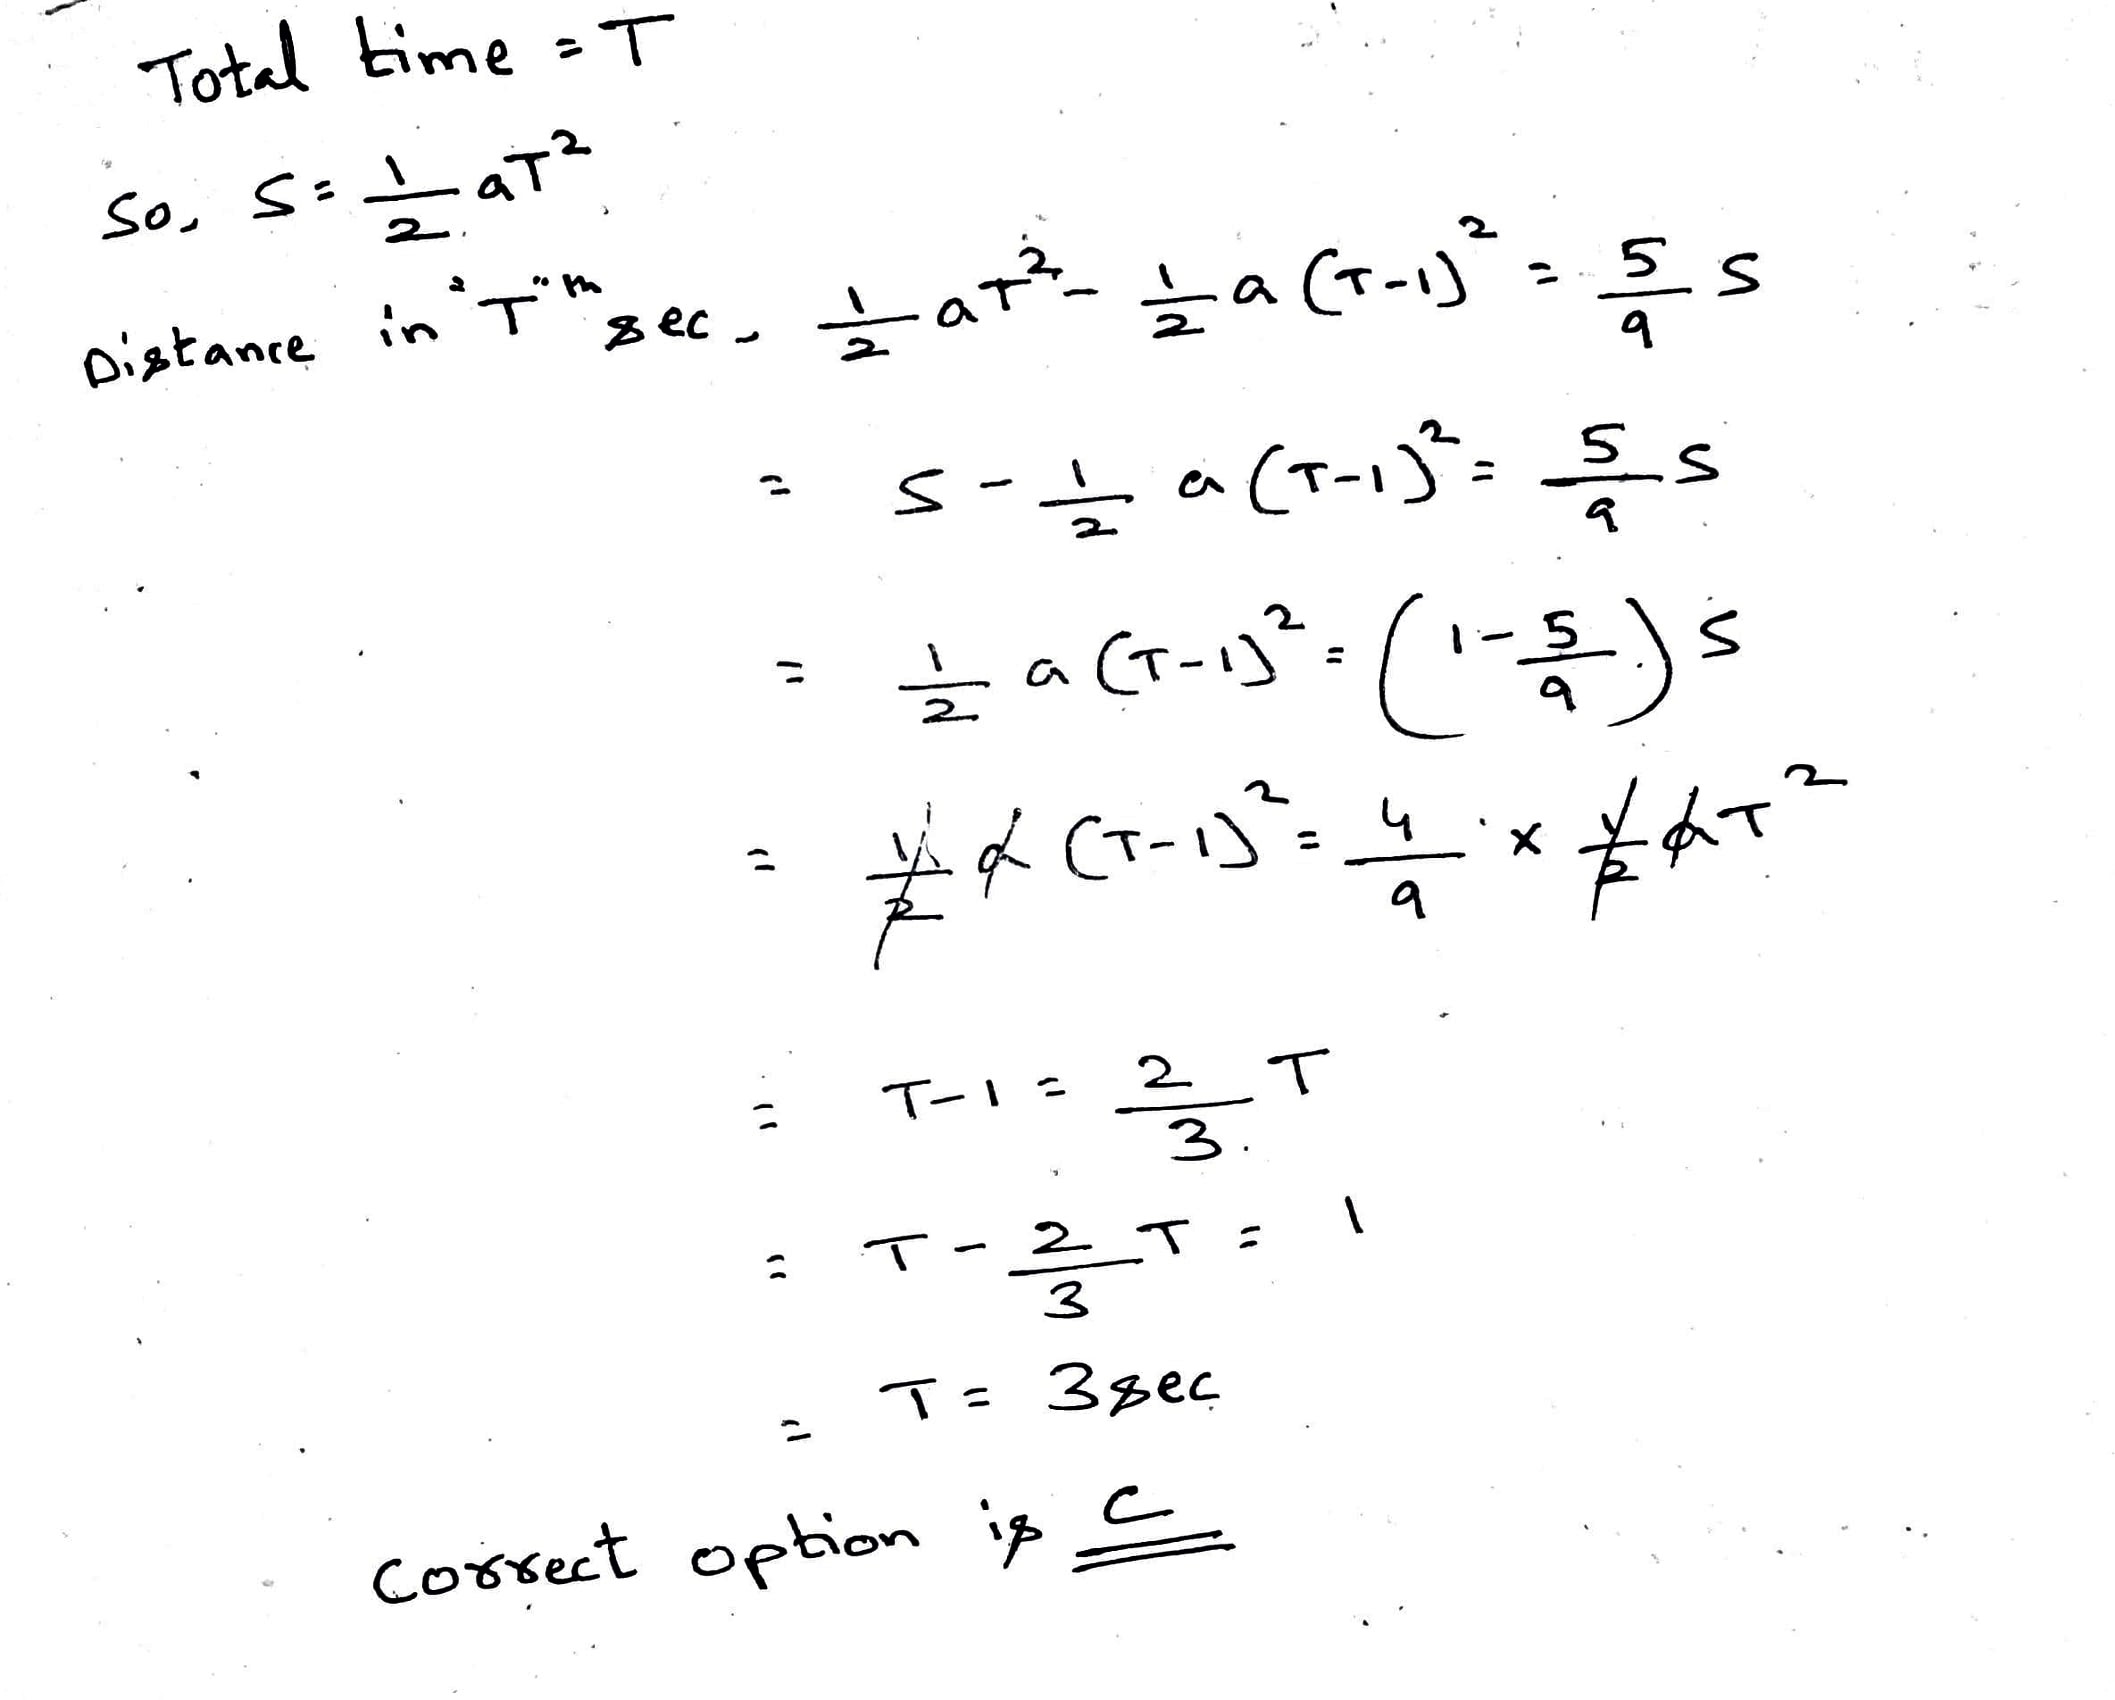 Total time = T
So, S = 1/2 aT²
Distance in "T"th sec, 1/2 aT² - 1/2 a(T-1)² = 5/9 S
= S - 1/2 a(T-1)² = 5/9 S
= 1/2 a(T-1)² = (1 - 5/9) S
= 1/2 a(T-1)² = 4/9 × 1/2 aT²
= T-1 = 2/3 T
= T - 2/3 T = 1
= T = 3 sec
Correct option is C